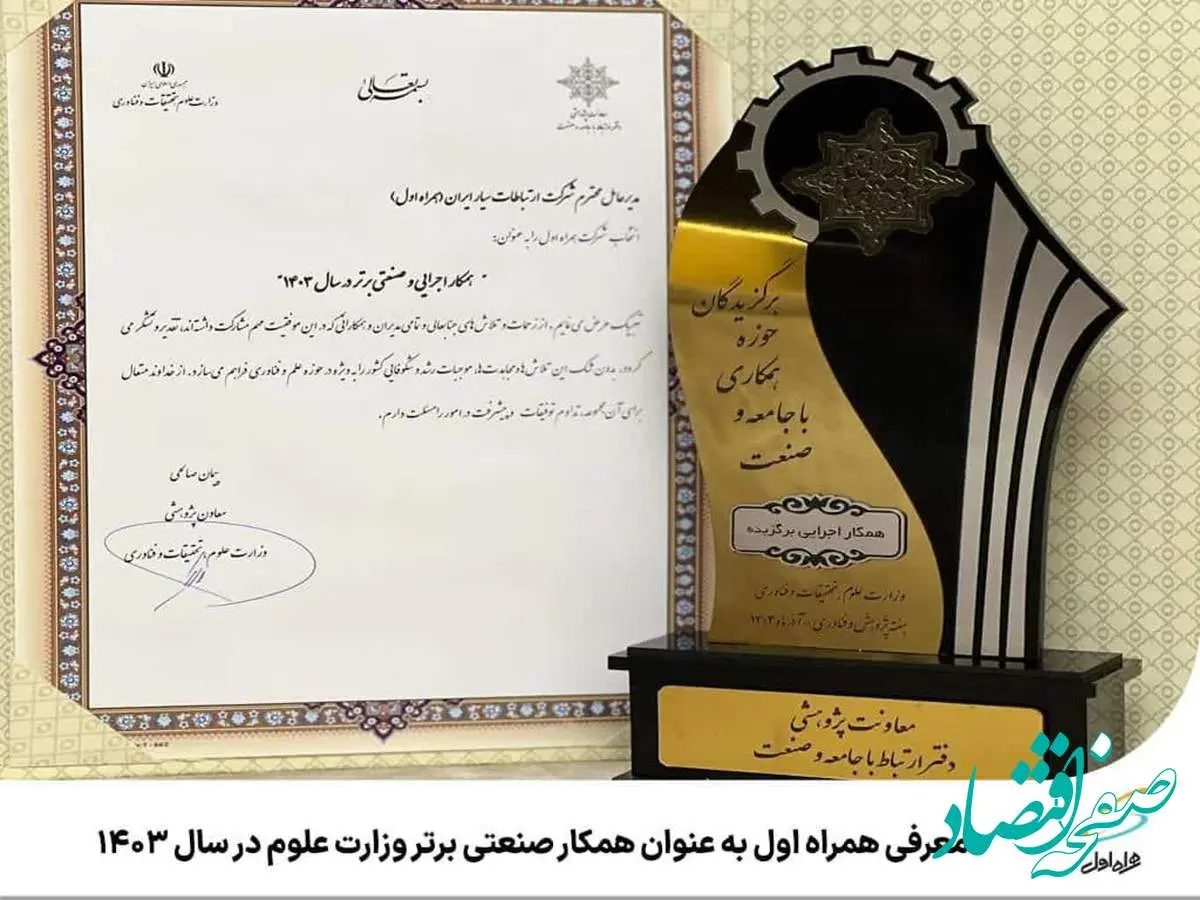 جمهوری اسلامی ایران
وزارت علوم، تحقیقات و فناوری
بسمه تعالی
معاونت پژوهشی
دفتر ارتباط با جامعه و صنعت
مدیرعامل محترم شرکت ارتباطات سیار ایران (همراه اول)
انتخاب شرکت همراه اول را به عنوان:
"همکار اجرایی و صنعتی برتر در سال ۱۴۰۳"
تبریک عرض می نمایم. از زحمات و تلاش های جنابعالی و تمامی مدیران و همکارانی که در این موفقیت مهم مشارکت داشته اند، تقدیر و تشکر می
گردد. بدون شک این تلاش ها و مجاهدت ها، موجبات رشد و شکوفایی کشور را به ویژه در حوزه علم و فناوری فراهم می سازد. از خداوند متعال
برای آن مجموعه، تداوم توفیقات و پیشرفت در امور را مسئلت دارم.
پیمان صالحی
معاون پژوهشی
وزارت علوم، تحقیقات و فناوری
برگزیدگان
حوزه
همکاری
با جامعه و
صنعت
همکار اجرایی برگزیده
وزارت علوم، تحقیقات و فناوری
هفته پژوهش و فناوری - آذرماه ۱۴۰۳
معاونت پژوهشی
دفتر ارتباط با جامعه و صنعت
معرفی همراه اول به عنوان همکار صنعتی برتر وزارت علوم در سال ۱۴۰۳
صفحه اقتصاد
همراه اول